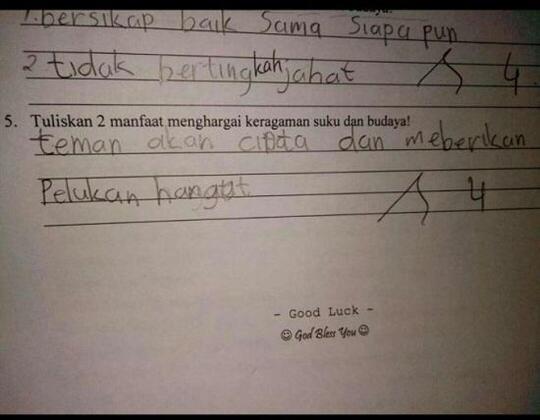 1. bersikap baik Sama Siapa pun
2 tidak bertingkah jahat 4
5. Tuliskan 2 manfaat menghargai keragaman suku dan budaya!
teman akan cipta dan meberikan
Pelukan hangat 4
- Good Luck -
☺ God Bless You ☺